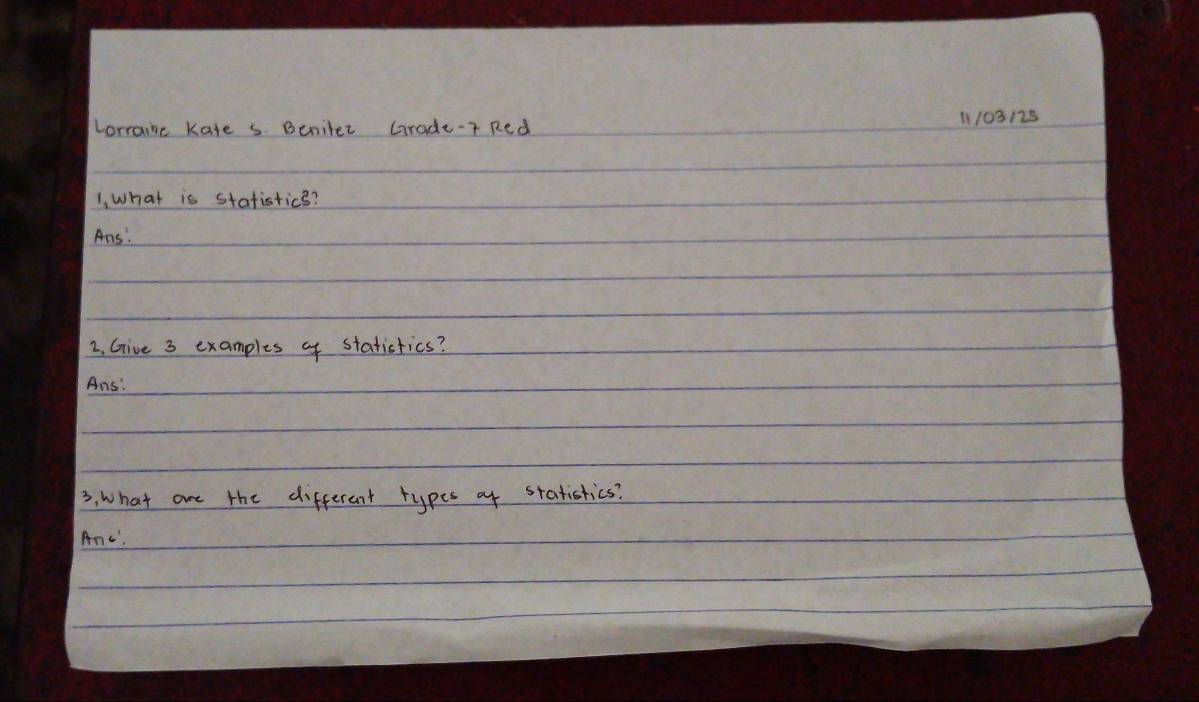 Lorraine Kate S. Benitez Grade-7 Red 11/03/25
1, What is statistics?
Ans:
2, Give 3 examples of statistics?
Ans:
3, What are the different types of statistics?
Ans: